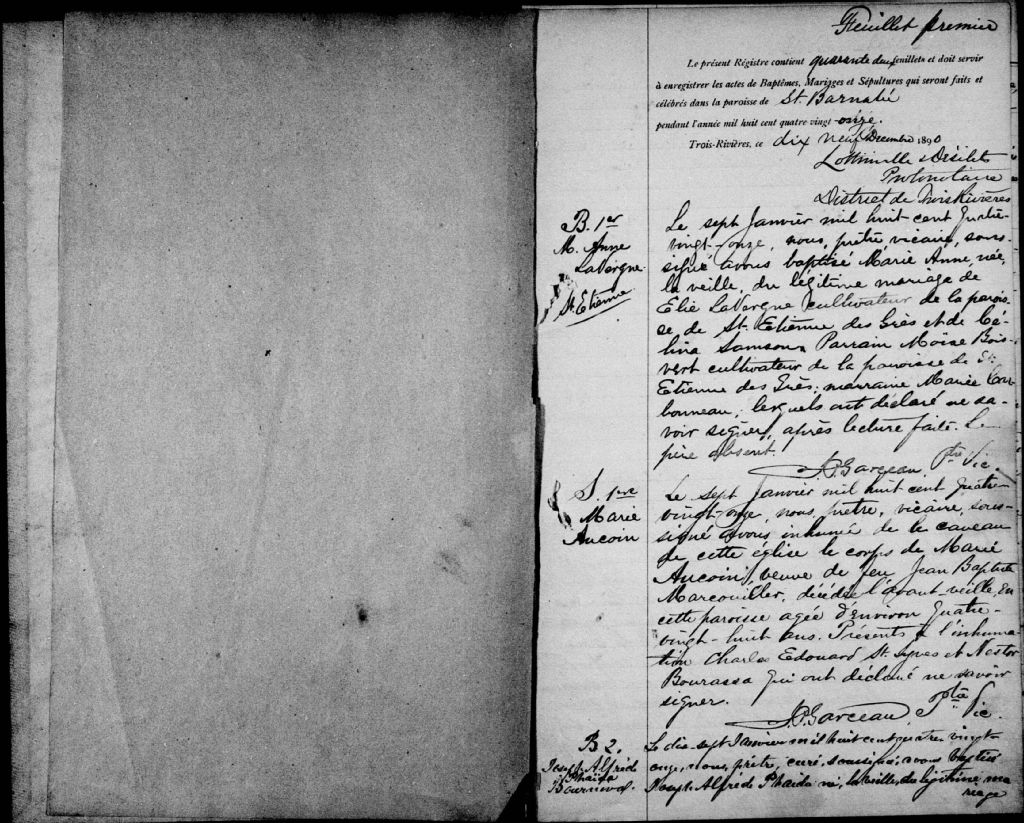 Feuillet premier
Le présent Régistre contient quarante deux feuillets et doit servir
à enregistrer les actes de Baptêmes, Mariages et Sépultures qui seront faits et
célébrés dans la paroisse de St. Barnabé
pendant l'année mil huit cent quatre vingt onze.
Trois-Rivières, ce dix neuf Decembre 1890
Lottinville & Désilets
Protonotaire
District de Trois Rivières
B. 1er
M. Anne
LaVergne
St. Etienne
Le sept Janvier mil huit-cent quatre-
vingt-onze, nous, prêtre vicaire, sous-
signé avons baptisé Marie Anne, née
la veille, du légitime mariage de
Elie LaVergne cultivateur de la parois-
se de St. Etienne des Grès et de Cé-
lina Samson. Parrain Moïse Bois-
vert cultivateur de la paroisse de St.
Etienne des Grès; marraine Marie Car
bonneau, lesquels ont déclaré ne sa-
voir signer, après lecture faite. Le
père absent.
Garceau Ptre Vic.
S. 1ere
Marie
Aucoin
Le sept Janvier mil huit cent quatre-
vingt-onze, nous, prêtre, vicaire, sous-
signé avons inhumé de le caveau
de cette église le corps de Marie
Aucoin, veuve de feu Jean Baptiste
Marcouiller, décédée l'avant-veille, en
cette paroisse agée d'environ quatre-
vingt-huit ans. Présents à l'inhuma-
tion Charles Edouard St. Yves et Nestor
Bourassa qui ont déclaré ne savoir
signer.
Garceau, Ptre Vic.
B 2.
Joseph Alfréd
Phaïda
Bournival.
Le dix-sept Janvier mil huit cent quatre vingt-
onze, nous, prêtre, curé, soussigné, avons baptisé
Joseph Alfréde Phaida né, la veille, du légitime ma
riage